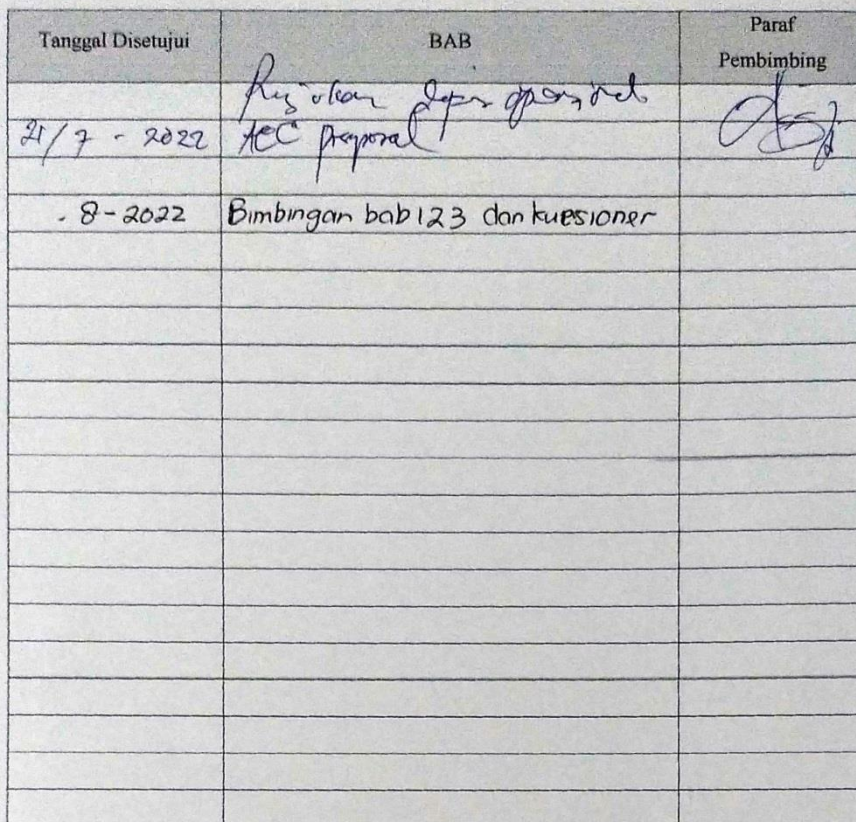 Tanggal Disetujui BAB Paraf
Pembimbing
21/7 - 2022 ACC proposal
. 8-2022 Bimbingan bab 123 dan kuesioner